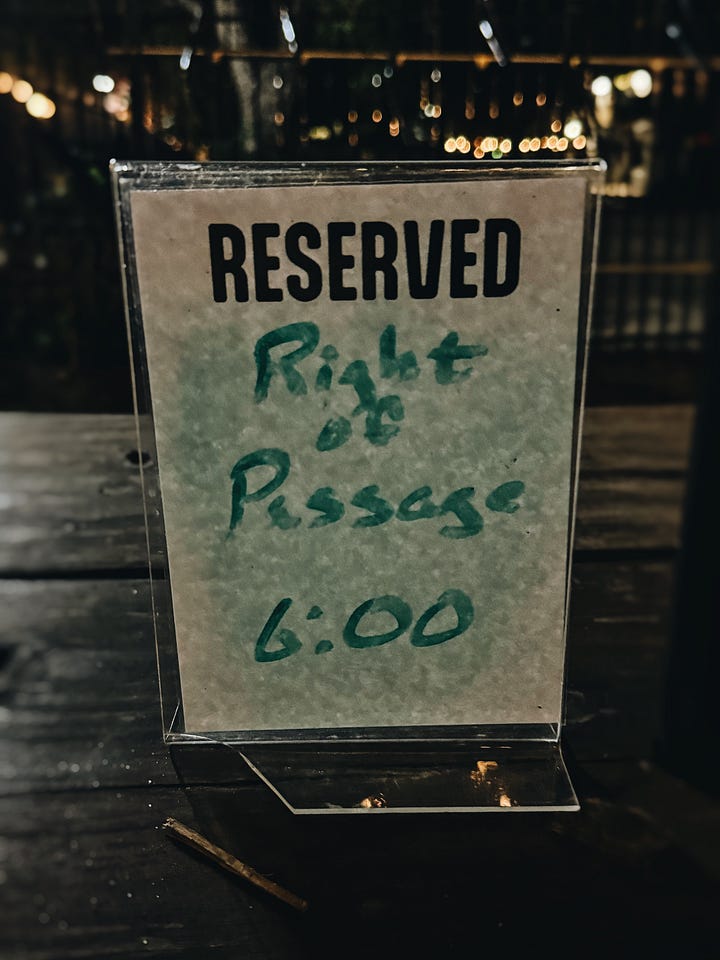 RESERVED
Right
of
Passage
6:00